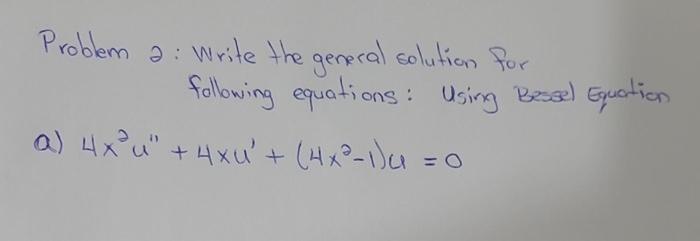 Problem 2: Write the general solution for
following equations: Using Bessel Equation
a) 4x²u" + 4xu' + (4x²-1)u = 0